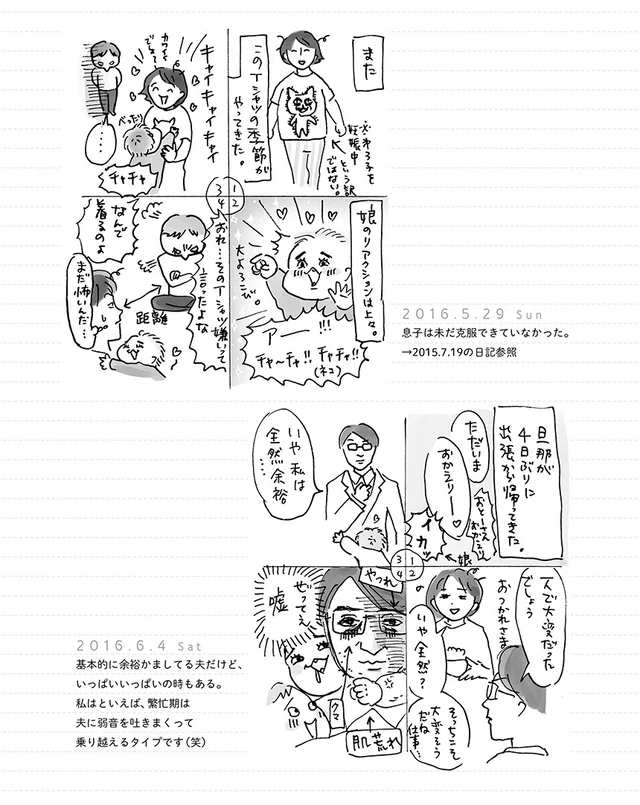 また
このTシャツの季節が
やってきた。
※第3子を
妊娠中
という訳
ではない。
1
2
3
4
娘のリアクションは上々。
大よろこび。
アー!!!
チャ〜チャ!! チャチャ!!
(ネコ)
キャイキャイキャイ
カワイイ
でしょ〜
べったり
チャチャ
…
おれ…そのTシャツ嫌いって
言ったよな
なんで
着るのよ
距離
まだ怖いんだ…
2016.5.29 Sun
息子は未だ克服できていなかった。
→2015.7.19の日記参照
旦那が
4日ぶりに
出張から帰ってきた。
ただいま
おかえりー♡
おとーさん
おかえり
イカッ
←娘
1
2
3
4
一人で大変だった
でしょう
おつかれさま
いや全然?
そっちこそ
大変そう
だね
仕事…
いや私は
全然余裕
……
ぜってぇ
嘘
やつれ
クマ
肌荒れ
2016.6.4 Sat
基本的に余裕かましてる夫だけど、
いっぱいいっぱいの時もある。
私はといえば、繁忙期は
夫に弱音を吐きまくって
乗り越えるタイプです(笑)